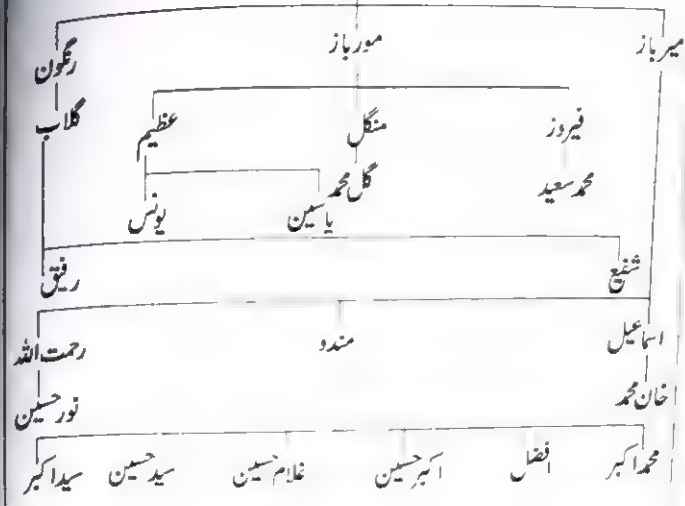 میرباز مورباز رنگون
فیروز منگل عظیم گلاب
محمد سعید گل محمد یاسین یونس
شفیع رفیق
اسماعیل مندو رحمت اللہ
خان محمد نور حسین
محمد اکبر افضل اکبر حسین غلام حسین سید حسین سید اکبر